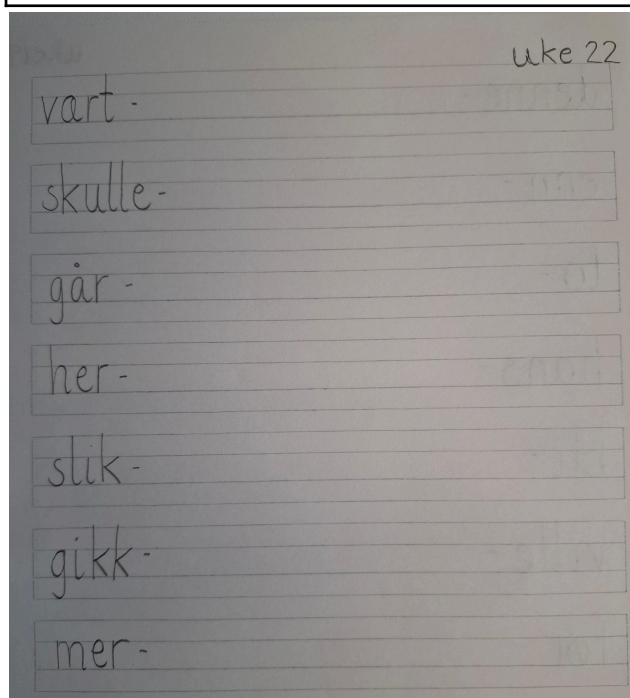 uke 22
vart -
skulle -
går -
her -
slik -
gikk -
mer -